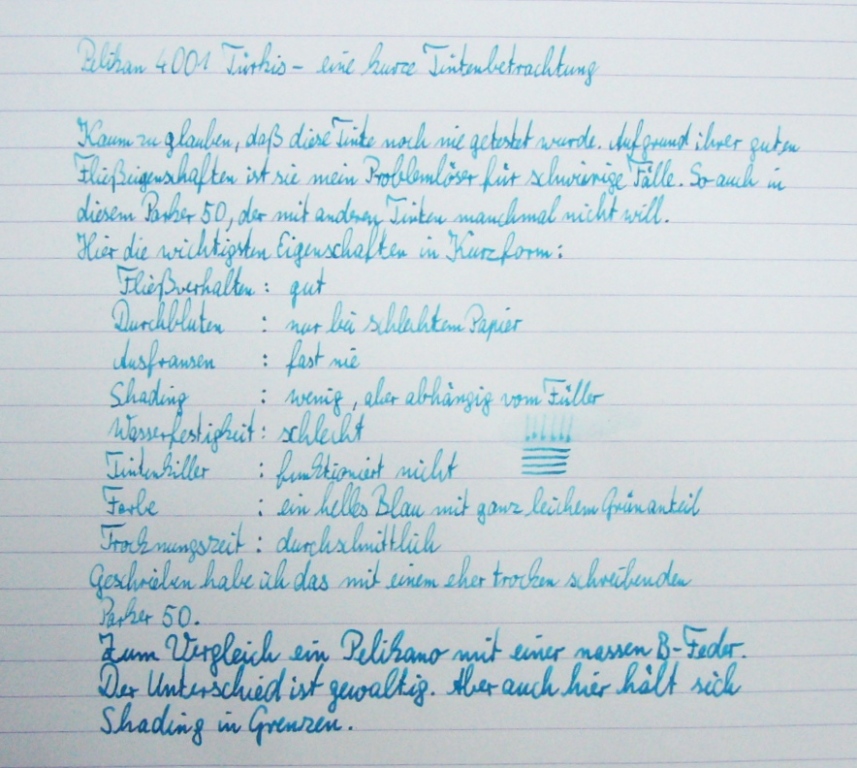 Pelikan 4001 Türkis - eine kurze Tintenbetrachtung
Kaum zu glauben, daß diese Tinte noch nie getestet wurde. Aufgrund ihrer guten
Fließeigenschaften ist sie mein Problemlöser für schwierige Fälle. So auch in
diesem Parker 50, der mit anderen Tinten manchmal nicht will.
Hier die wichtigsten Eigenschaften in Kurzform:
Fließverhalten : gut
Durchbluten : nur bei schlechtem Papier
Ausfransen : fast nie
Shading : wenig, aber abhängig vom Füller
Wasserfestigkeit : schlecht
Tintenkiller : funktioniert nicht
Farbe : ein helles Blau mit ganz leichem Grünanteil
Trocknungszeit : durchschnittlich
Geschrieben habe ich das mit einem eher trocken schreibenden
Parker 50.
Zum Vergleich ein Pelikano mit einer nassen B-Feder.
Der Unterschied ist gewaltig. Aber auch hier hält sich
Shading in Grenzen.